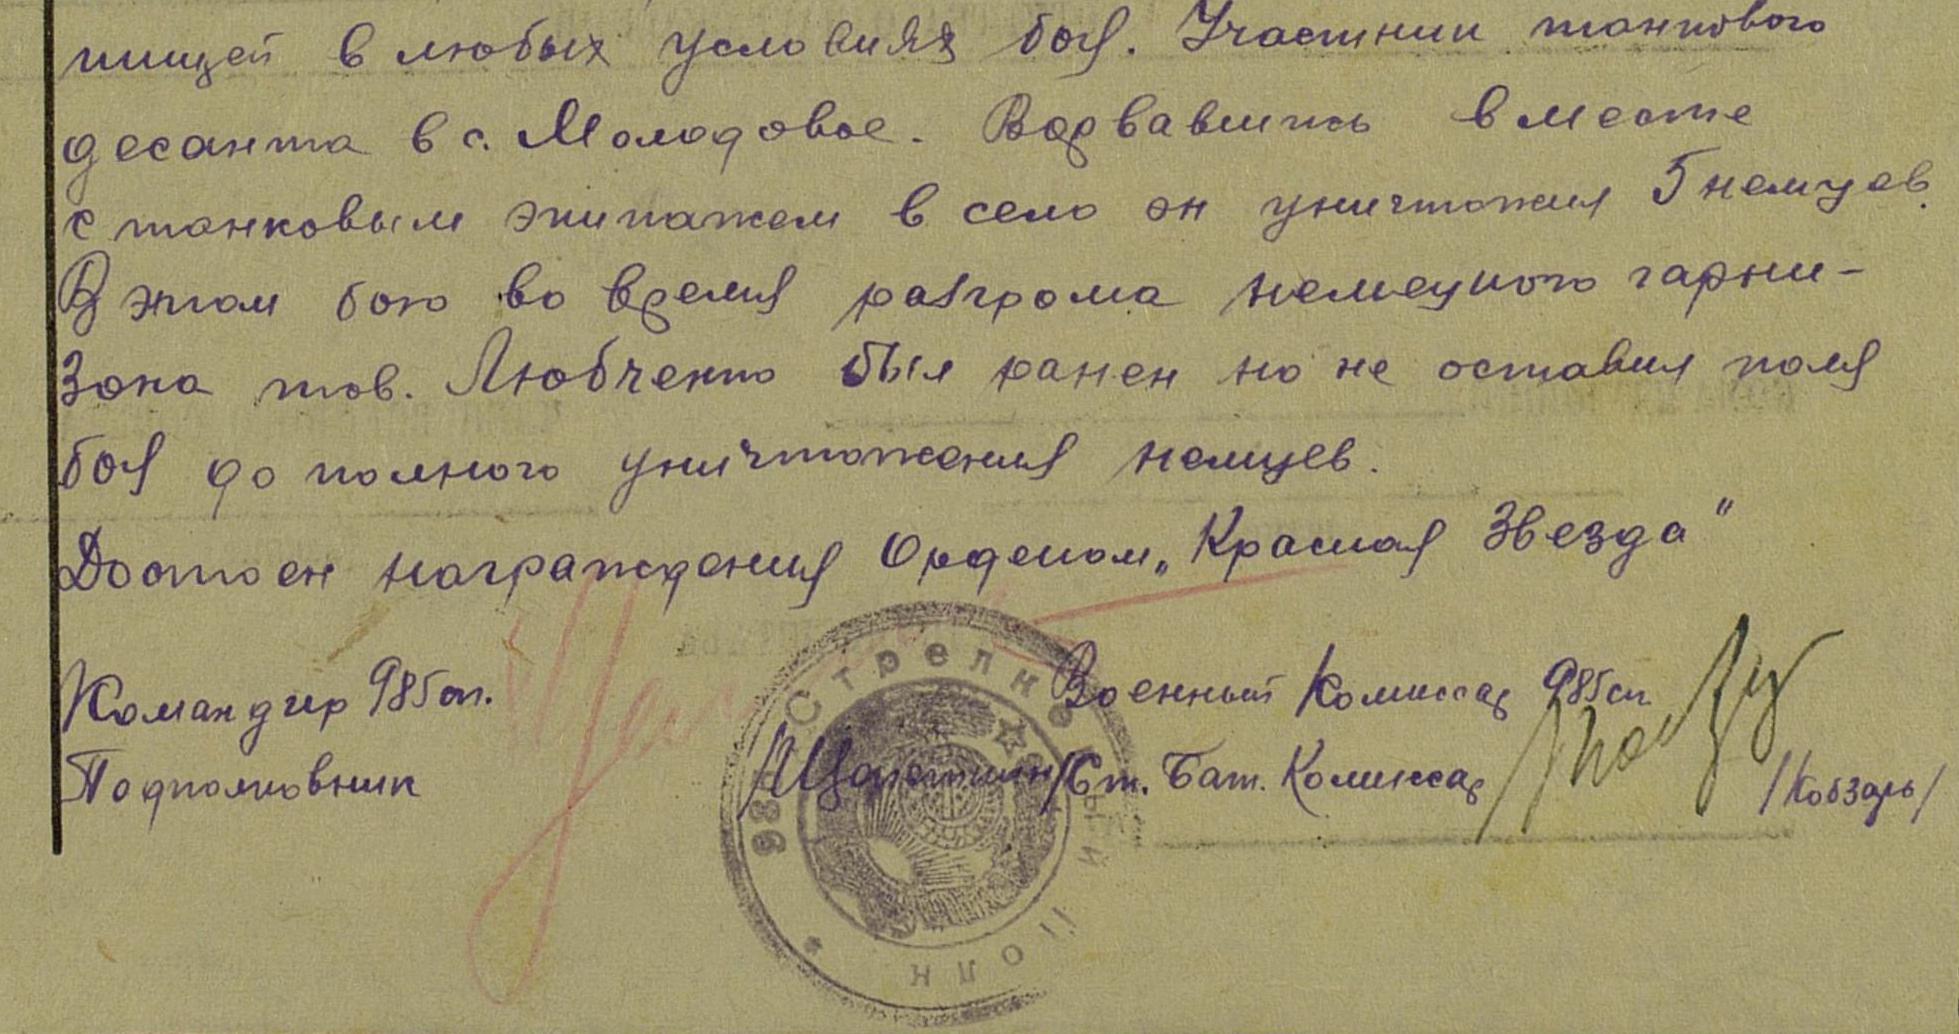 пищей в любых условиях боя. Участник танкового
десанта в с. Молодовое. Ворвавшись вместе
с танковым экипажем в село он уничтожил 5 немцев.
В этом бою во время разгрома немецкого гарни-
зона тов. Любченко был ранен но не оставил поля
боя до полного уничтожения немцев.
Достоен награждения Орденом „Красная Звезда"
Командир 985 сп. Военный Комиссар 985 сп
Подполковник Ст. Бат. Комиссар /Кобзарь/
985 Стрелковый Полк